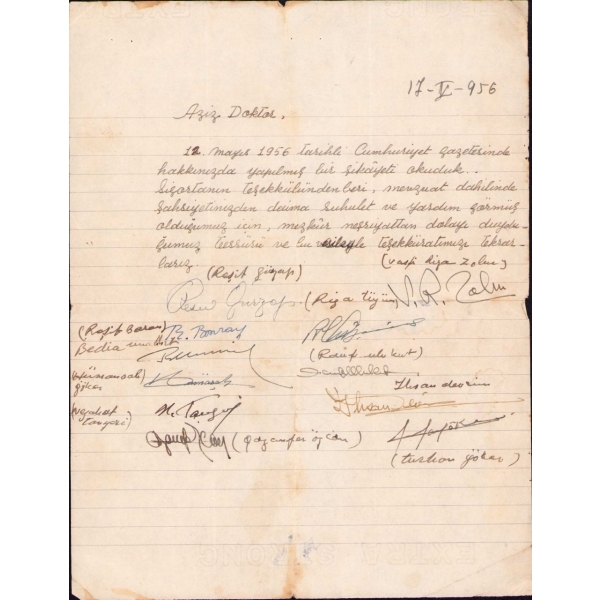 17-V-956
Aziz Doktor,
12. mayıs 1956 tarihli Cumhuriyet gazetesinde
hakkınızda yapılmış bir şikâyeti okuduk..
Sigortanın teşekkülünden beri, mevzuat dahilinde
şahsiyetinizden daima suhulet ve yardım görmüş
olduğumuz için, mezkûr neşriyattan dolayı duydu-
ğumuz teessürü ve bu vesileyle teşekküratımızı tekrar-
larız.
(Reşit Gürzap) (Vasfi Rıza Zobu)
Reşit Gürzap (Rıza Tüzün) V. R. Zobu
(Reşit Baran) R. Baran
Bedia
(Rauf ulukut)
(Hüsamettin
göker) İhsan devrim
İhsan
(Necabet
tanyeri) N. Tanyeri
(gazanfer özcan)
(turhan göker)
EXTRA STRONG